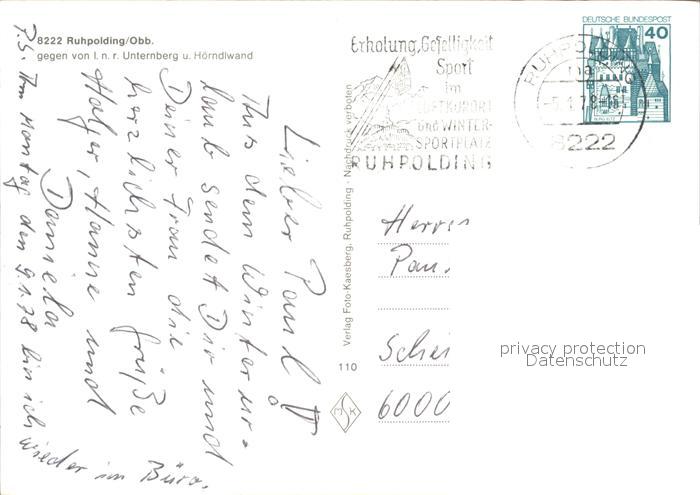 8222 Ruhpolding/Obb.
gegen von l. n. r. Unternberg u. Hörndlwand
Lieber Paul
Aus dem Winterur-
laub sendet Dir und
Deiner Frau die
herzlichsten Grüße
Holger, Hanne und
Daniela
P.S. Am Montag den 9.1.78 bin ich
wieder im Büro.
Verlag Foto-Kaesberg, Ruhpolding · Nachdruck verboten
110
MSK
Erholung, Geselligkeit
Sport
im
LUFTKURORT
und WINTER-
SPORTPLATZ
RUHPOLDING
RUHPOLDING
8222
DEUTSCHE BUNDESPOST
40
Herrn
Pau
Schei
6000
privacy protection
Datenschutz